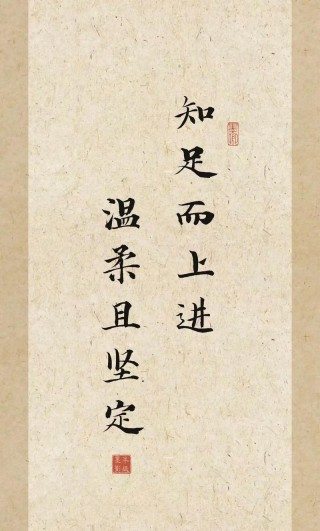 知足而上进
温柔且坚定